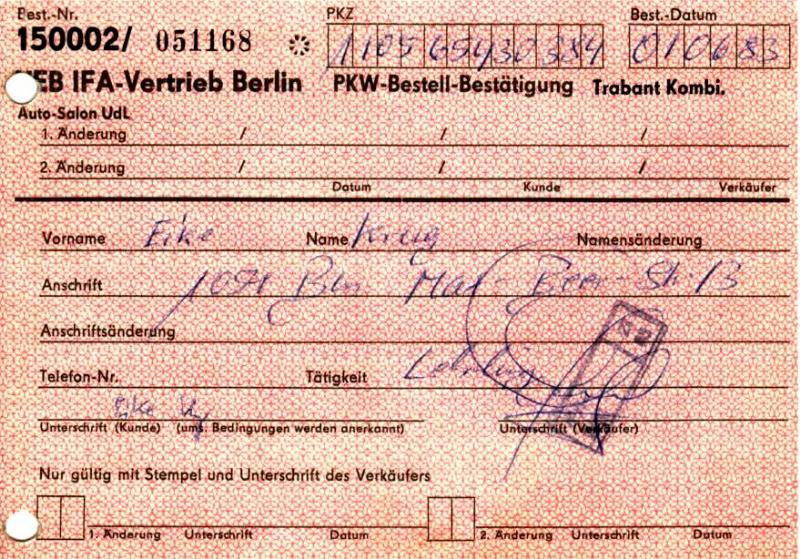 Best.-Nr. PKZ Best.-Datum
150002/ 051168 110565430384 010683
VEB IFA-Vertrieb Berlin PKW-Bestell-Bestätigung Trabant Kombi.
Auto-Salon UdL
1. Änderung / / /
2. Änderung / / /
Datum Kunde Verkäufer
Vorname Eike Name Krug Namensänderung
Anschrift Bln Max-Beer-Str. 13
Anschriftsänderung
Telefon-Nr. Tätigkeit Lehrling
Unterschrift (Kunde) (ums. Bedingungen werden anerkannt) Unterschrift (Verkäufer)
Nur gültig mit Stempel und Unterschrift des Verkäufers
1. Änderung Unterschrift Datum 2. Änderung Unterschrift Datum